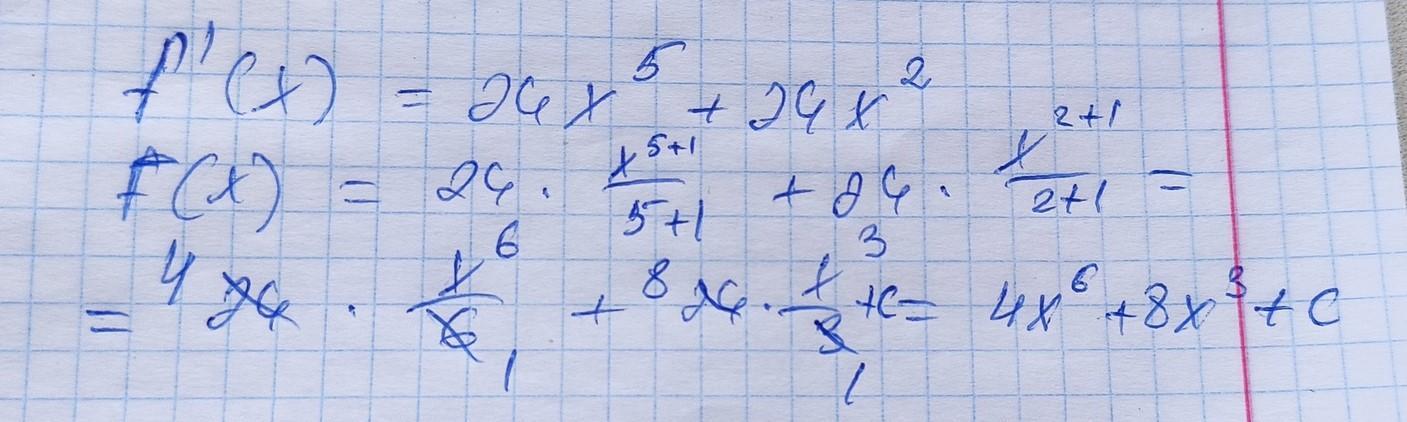 f'(x) = 24x⁵ + 24x²
F(x) = 24 · x⁵⁺¹/5+1 + 24 · x²⁺¹/2+1 =
= ⁴24 · x⁶/6 1 + ⁸24 · x³/3 1 + c = 4x⁶ + 8x³ + C